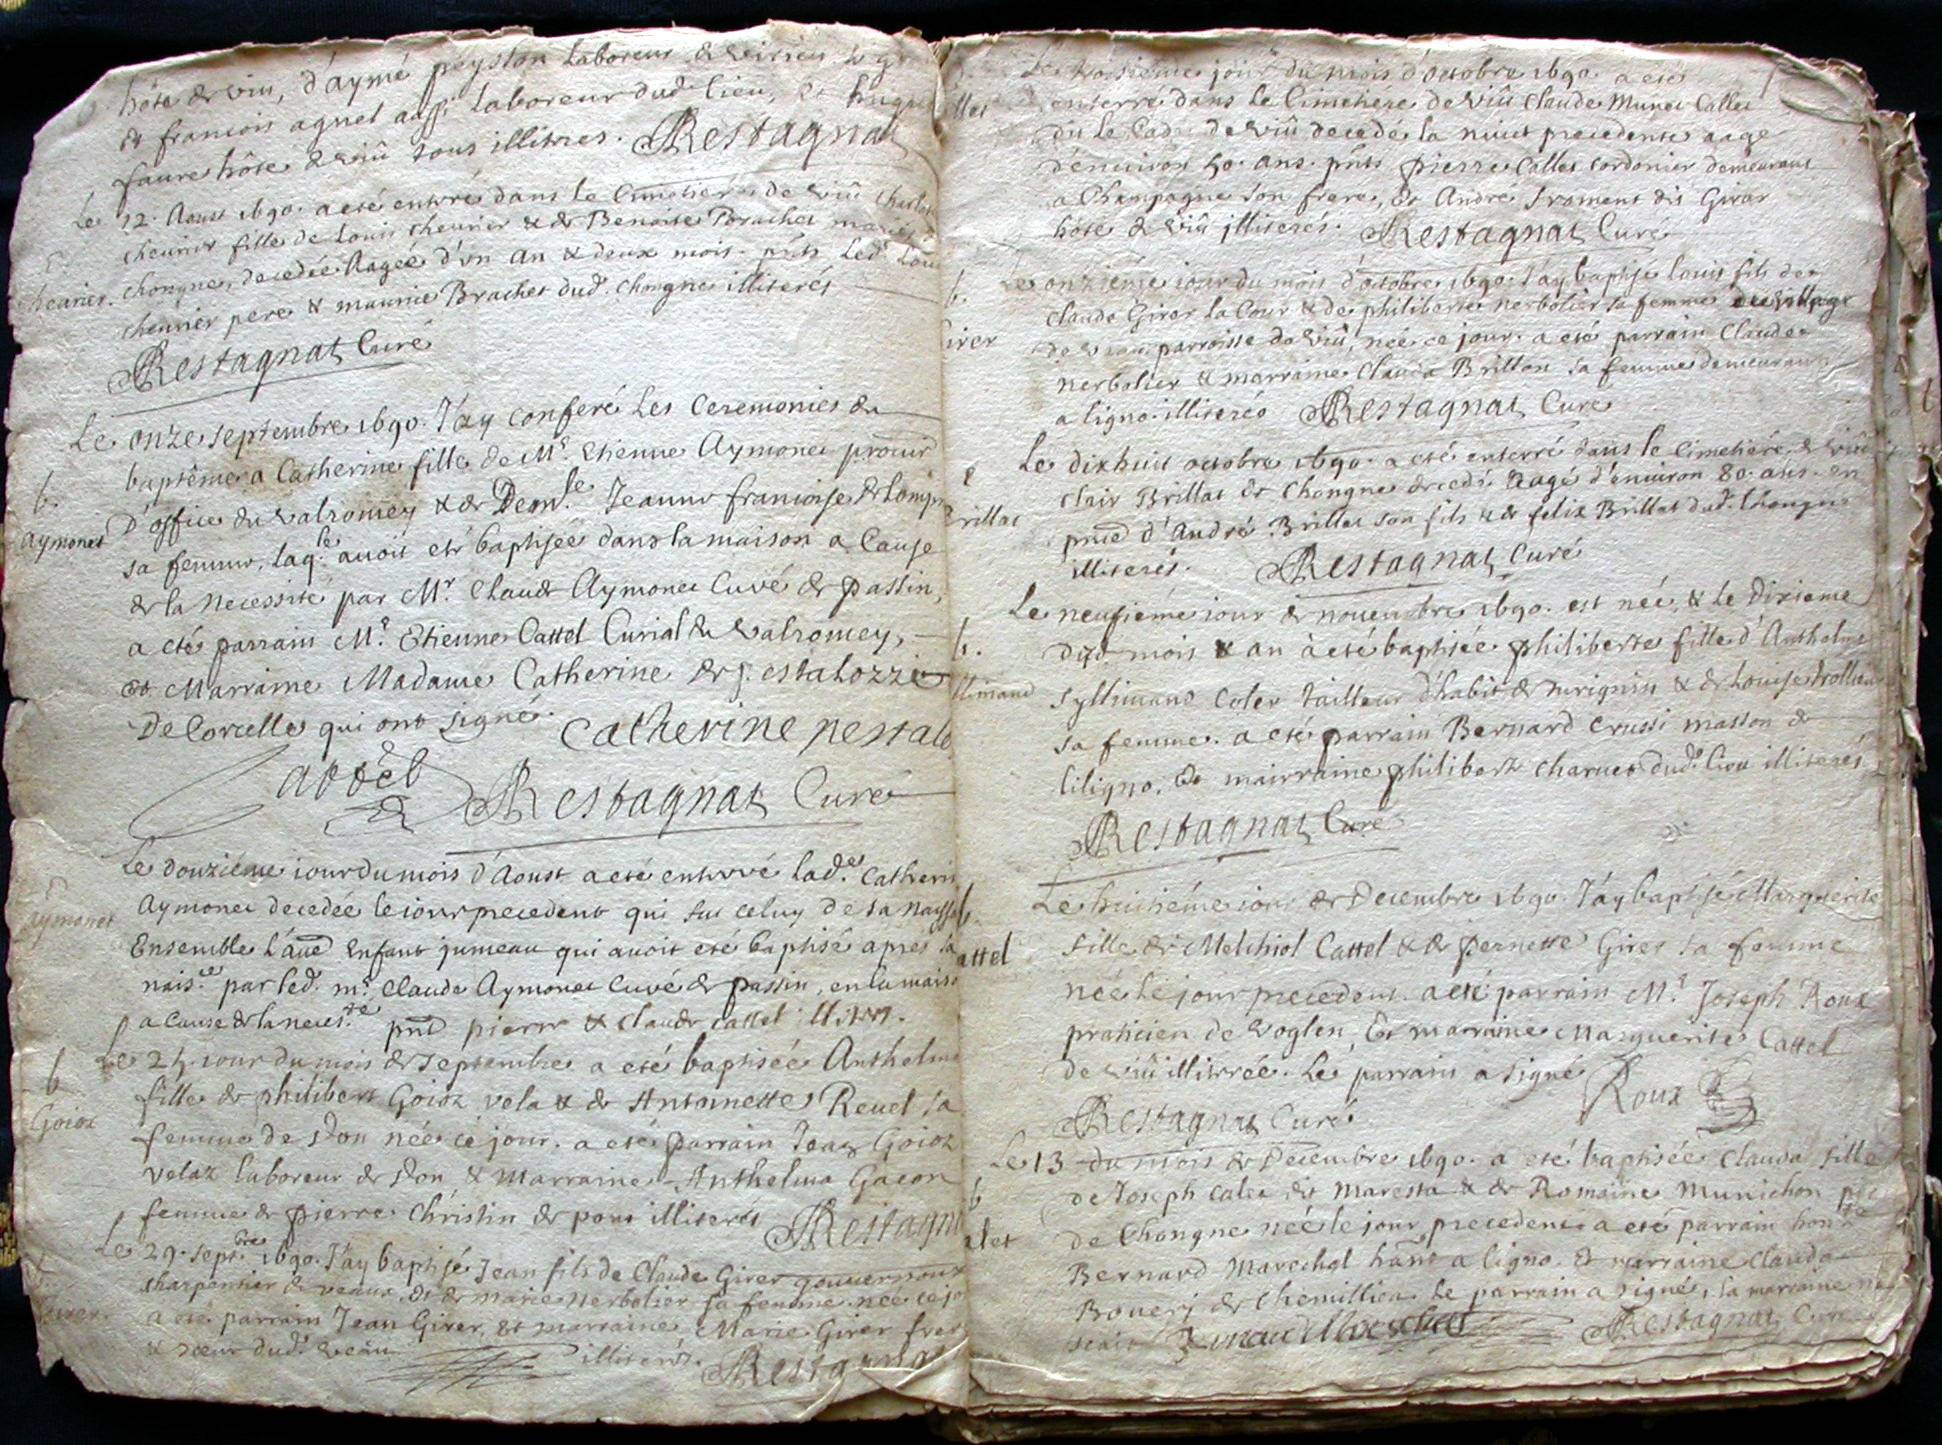 hôte de viu, d'aymé peyston laboreur de virieu le gr
et francois agnel aussi laboreur dud. lieu, et hugu
faure hôte de viû tous illitres. Restagnat
Le 12. Aoust 1690. a eté enterré dans le Cimetiére de viû Charlot
cheurier fille de Louis cheurier & de Benoite Brachet mariés
heurier. chongne, decedée aagée d'vn an & deux mois. pnts Led. Loui
cheurier pere & maurice Brachet dud. chongne illiterés
Restagnat Curé
Le onze septembre 1690. J'ay conferé Les Ceremonies du
b. baptême a Catherine fille de Mr. Etienne Aymonet procur
Aymonet d'office du valromey & de Demlle Jeanne francoise de
sa femme, laq.le auoit eté baptisée dans la maison a Cause
de la necessité par Mr. Claude Aymonet Curé de passin,
a eté parrain Mr. Etienne Cattel Curial du valromey,
et Marraine Madame Catherine de pestalozzi
De Corcelle qui ont signé. Catherine pestalo
Cattel Restagnat Curé
Le douziéme iour du mois d'Aoust a eté enterré lad.e Catheri
Aymonet Aymonet decedée le iour precedent qui fut celuy de sa naiss
Ensemble l'autre Enfant jumeau qui auoit eté baptisé aprés la
nais.ce par led. mr. Claude Aymonet Curé de passin, en la maiso
a cause de la necess.té pnt pierre & claude cattel illitrés.
b Le 24. iour du mois de septembre a eté baptisée Anthelme
Goioz fille de philibert Goioz velaz & de Antoinette Reuel sa
femme de don née ce jour. a eté parrain Jean Goioz
velaz laboreur de don & Marraine Anthelma Gacon
femme de pierre Christin de pont illiterés Restagn
Le 29. septbre 1690. J'ay baptisé Jean fils de Claude Girer gouuernoux
charpentier de veaux et de marie nerbolier sa femme née ce jo
Girer. a eté parrain Jean Girer, et marraine Marie Girer frer
& sœur dud. veau illiterés. Restagnat
Le troisiéme jour du mois d'octobre 1690. a eté
llet enterré dans le Cimetiére de viû Claude Munet Callet
dit le Cad de viû decedé la nuict precedente aagé
d'enuiron 50. ans. pnts pierre Callet cordonier demeurant
a Champagne son frere, et André froment dit Girar
hôte de viû illiterés. Restagnat Curé
b. Le onziéme iour du mois d'octobre 1690. J'ay baptisé louis fils de
Claude Girer la Cour & de philiberte nerbolier sa femme du village
irer parroisse de viû, née ce jour. a eté parrain Claude
nerbolier & marraine Clauda Brillon sa femme demeurant
a ligno. illiterés Restagnat Curé
Le dixhuit octobre 1690. a eté enterré dans le Cimetiére de viû
Brillat clair Brillat de Chongne decedé aagé d'enuiron 80. ans. en
pnce d'André Brillat son fils & de felix Brillat dud. Chongne
illiterés. Restagnat Curé
Le neufiéme iour de nouembre 1690. est née, & le dixieme
b. dud mois & an à eté baptisée philiberte fille d'Anthelme
llimand syllimand coler tailleur d'habit de & de Louise
sa femme. a eté parrain Bernard Crussi masson de
liligno, et mairraine philiberte charuet dud. lieu illiterés
Restagnat Curé
b. Le huitiéme iour de Decembre 1690. J'ay baptisé Marguerite
attel fille de Melchiol Cattel & de pernette Girer sa femme
née le jour precedent. a eté parrain Mr. Joseph Roux
praticien de voglen, Et marraine Marguerite Cattel
de viû illitrée. Le parrain a signé Roux
Restagnat Curé
Le 13 du mois de Decembre 1690. a eté baptisée Clauda fille
b de Joseph calet dit Maresta & de Romaine Munichon
alet de Chongne née le jour precedent a eté parrain hon.ble
Bernard Marechal hânt a ligno. Et marraine Clauda
Rouerj de Chemillieu Le parrain a signé, la marraine ne
scait Restagnat Curé